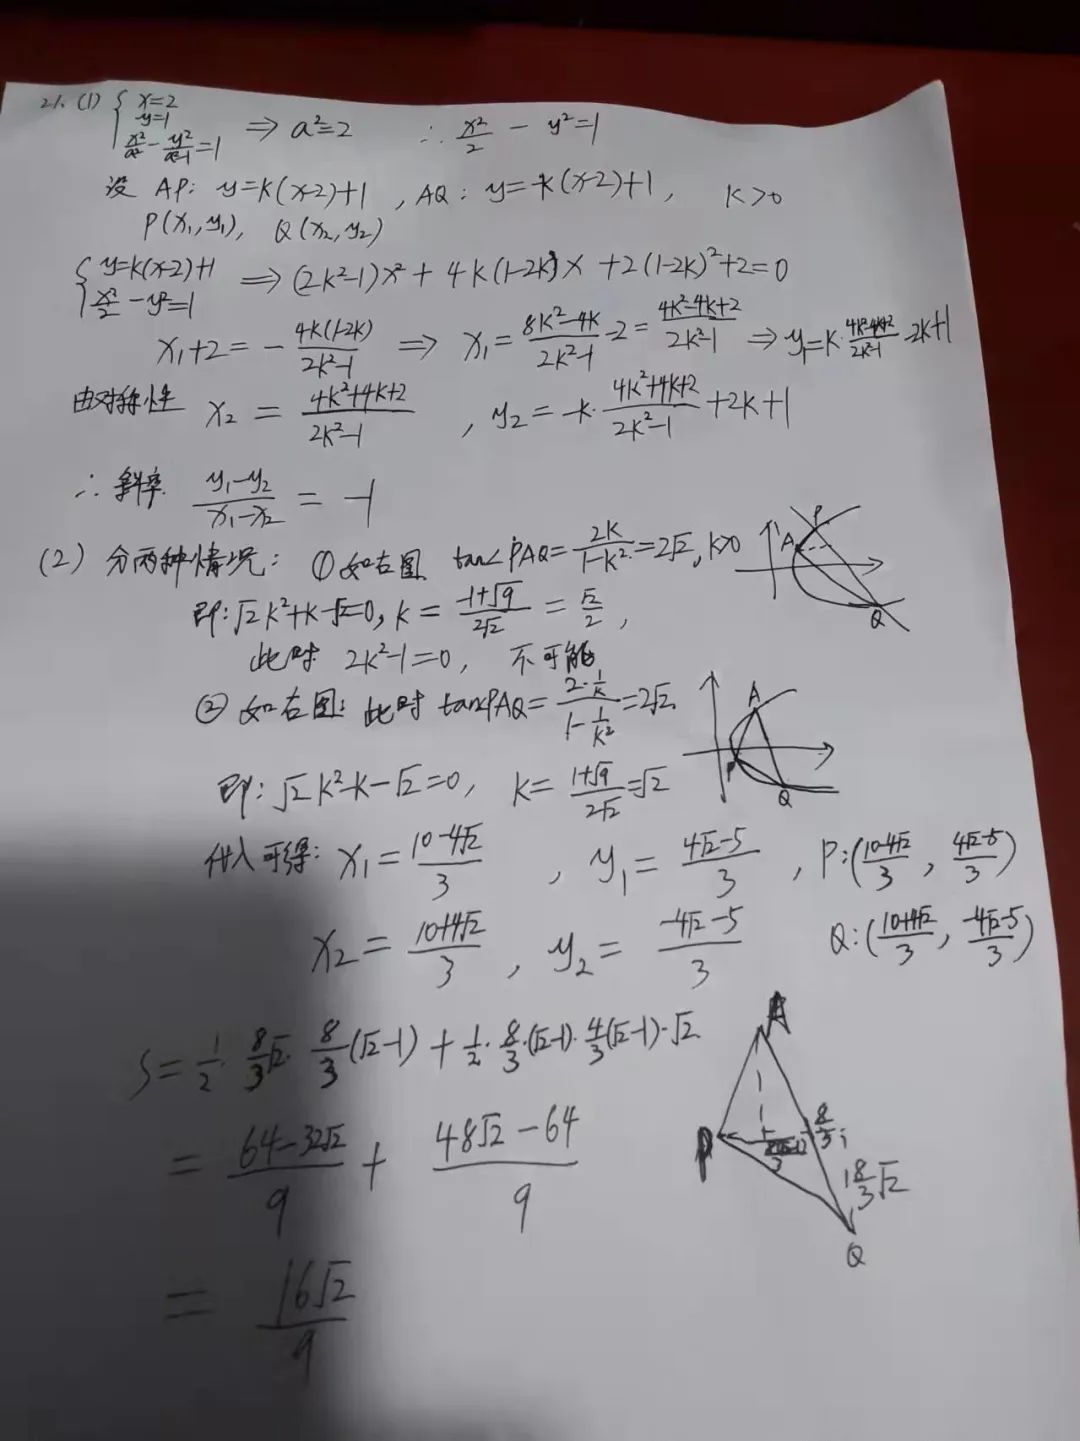 21. (1) { x=2 y=1 x²/a² - y²/(a²-1) =1 ⇒ a²=2 ∴ x²/2 - y²=1
设 AP: y=k(x-2)+1 , AQ: y=-k(x-2)+1, k>0
P(x₁,y₁), Q(x₂,y₂)
{ y=k(x-2)+1 x²/2 - y²=1 ⇒ (2k²-1)x² + 4k(1-2k)x +2(1-2k)²+2=0
x₁+2 = - 4k(1-2k)/(2k²-1) ⇒ x₁= (8k²-4k)/(2k²-1) -2 = (4k²-4k+2)/(2k²-1) ⇒ y₁=k·(4k²-4k+2)/(2k²-1) -2k+1
由对称性 x₂ = (4k²+4k+2)/(2k²-1) , y₂ = -k·(4k²+4k+2)/(2k²-1) +2k+1
∴ 斜率 (y₁-y₂)/(x₁-x₂) = -1
(2) 分两种情况: ① 如右图 tan∠PAQ= 2k/(1-k²) =2√2, k>0
即: √2k²+k-√2=0, k = (-1+√9)/(2√2) = √2/2 ,
此时 2k²-1=0, 不可能
② 如右图: 此时 tan∠PAQ= (2·1/k)/(1-1/k²) =2√2
即: √2k²-k-√2=0, k= (1+√9)/(2√2) =√2
代入可得: x₁= (10-4√2)/3 , y₁= (4√2-5)/3 , P:((10-4√2)/3 , (4√2-5)/3)
x₂= (10+4√2)/3 , y₂= (-4√2-5)/3 Q:((10+4√2)/3, (-4√2-5)/3)
S= 1/2 · 8/3√2 · 8/3(√2-1) + 1/2 · 8/3·(√2-1)· 4/3(√2-1)·√2
= (64-32√2)/9 + (48√2-64)/9
= 16√2/9
P
A
Q
A
P
Q
A
P
8/3
8/3√2
Q